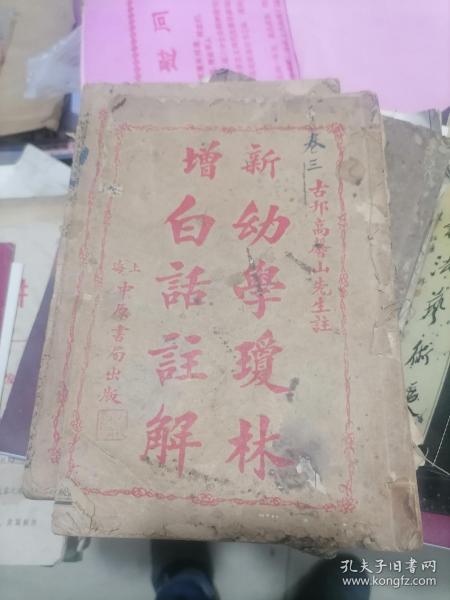 卷三
古邗高馨山先生註
新增
幼學瓊林
白話註解
上海中原書局出版
法藝術
孔夫子旧书网
www.kongfz.com